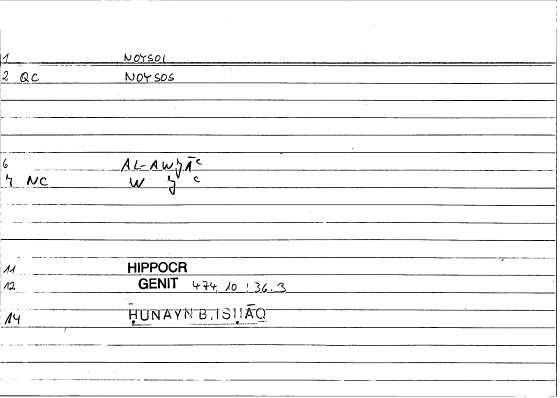 1 NOYSOI
2 QC NOYSOS
6 AL-AWǦĀʿ
7 NC W Ǧ ʿ
11 HIPPOCR
12 GENIT 474,10 : 36.3
14 ḤUNAYN B. ISḤĀQ